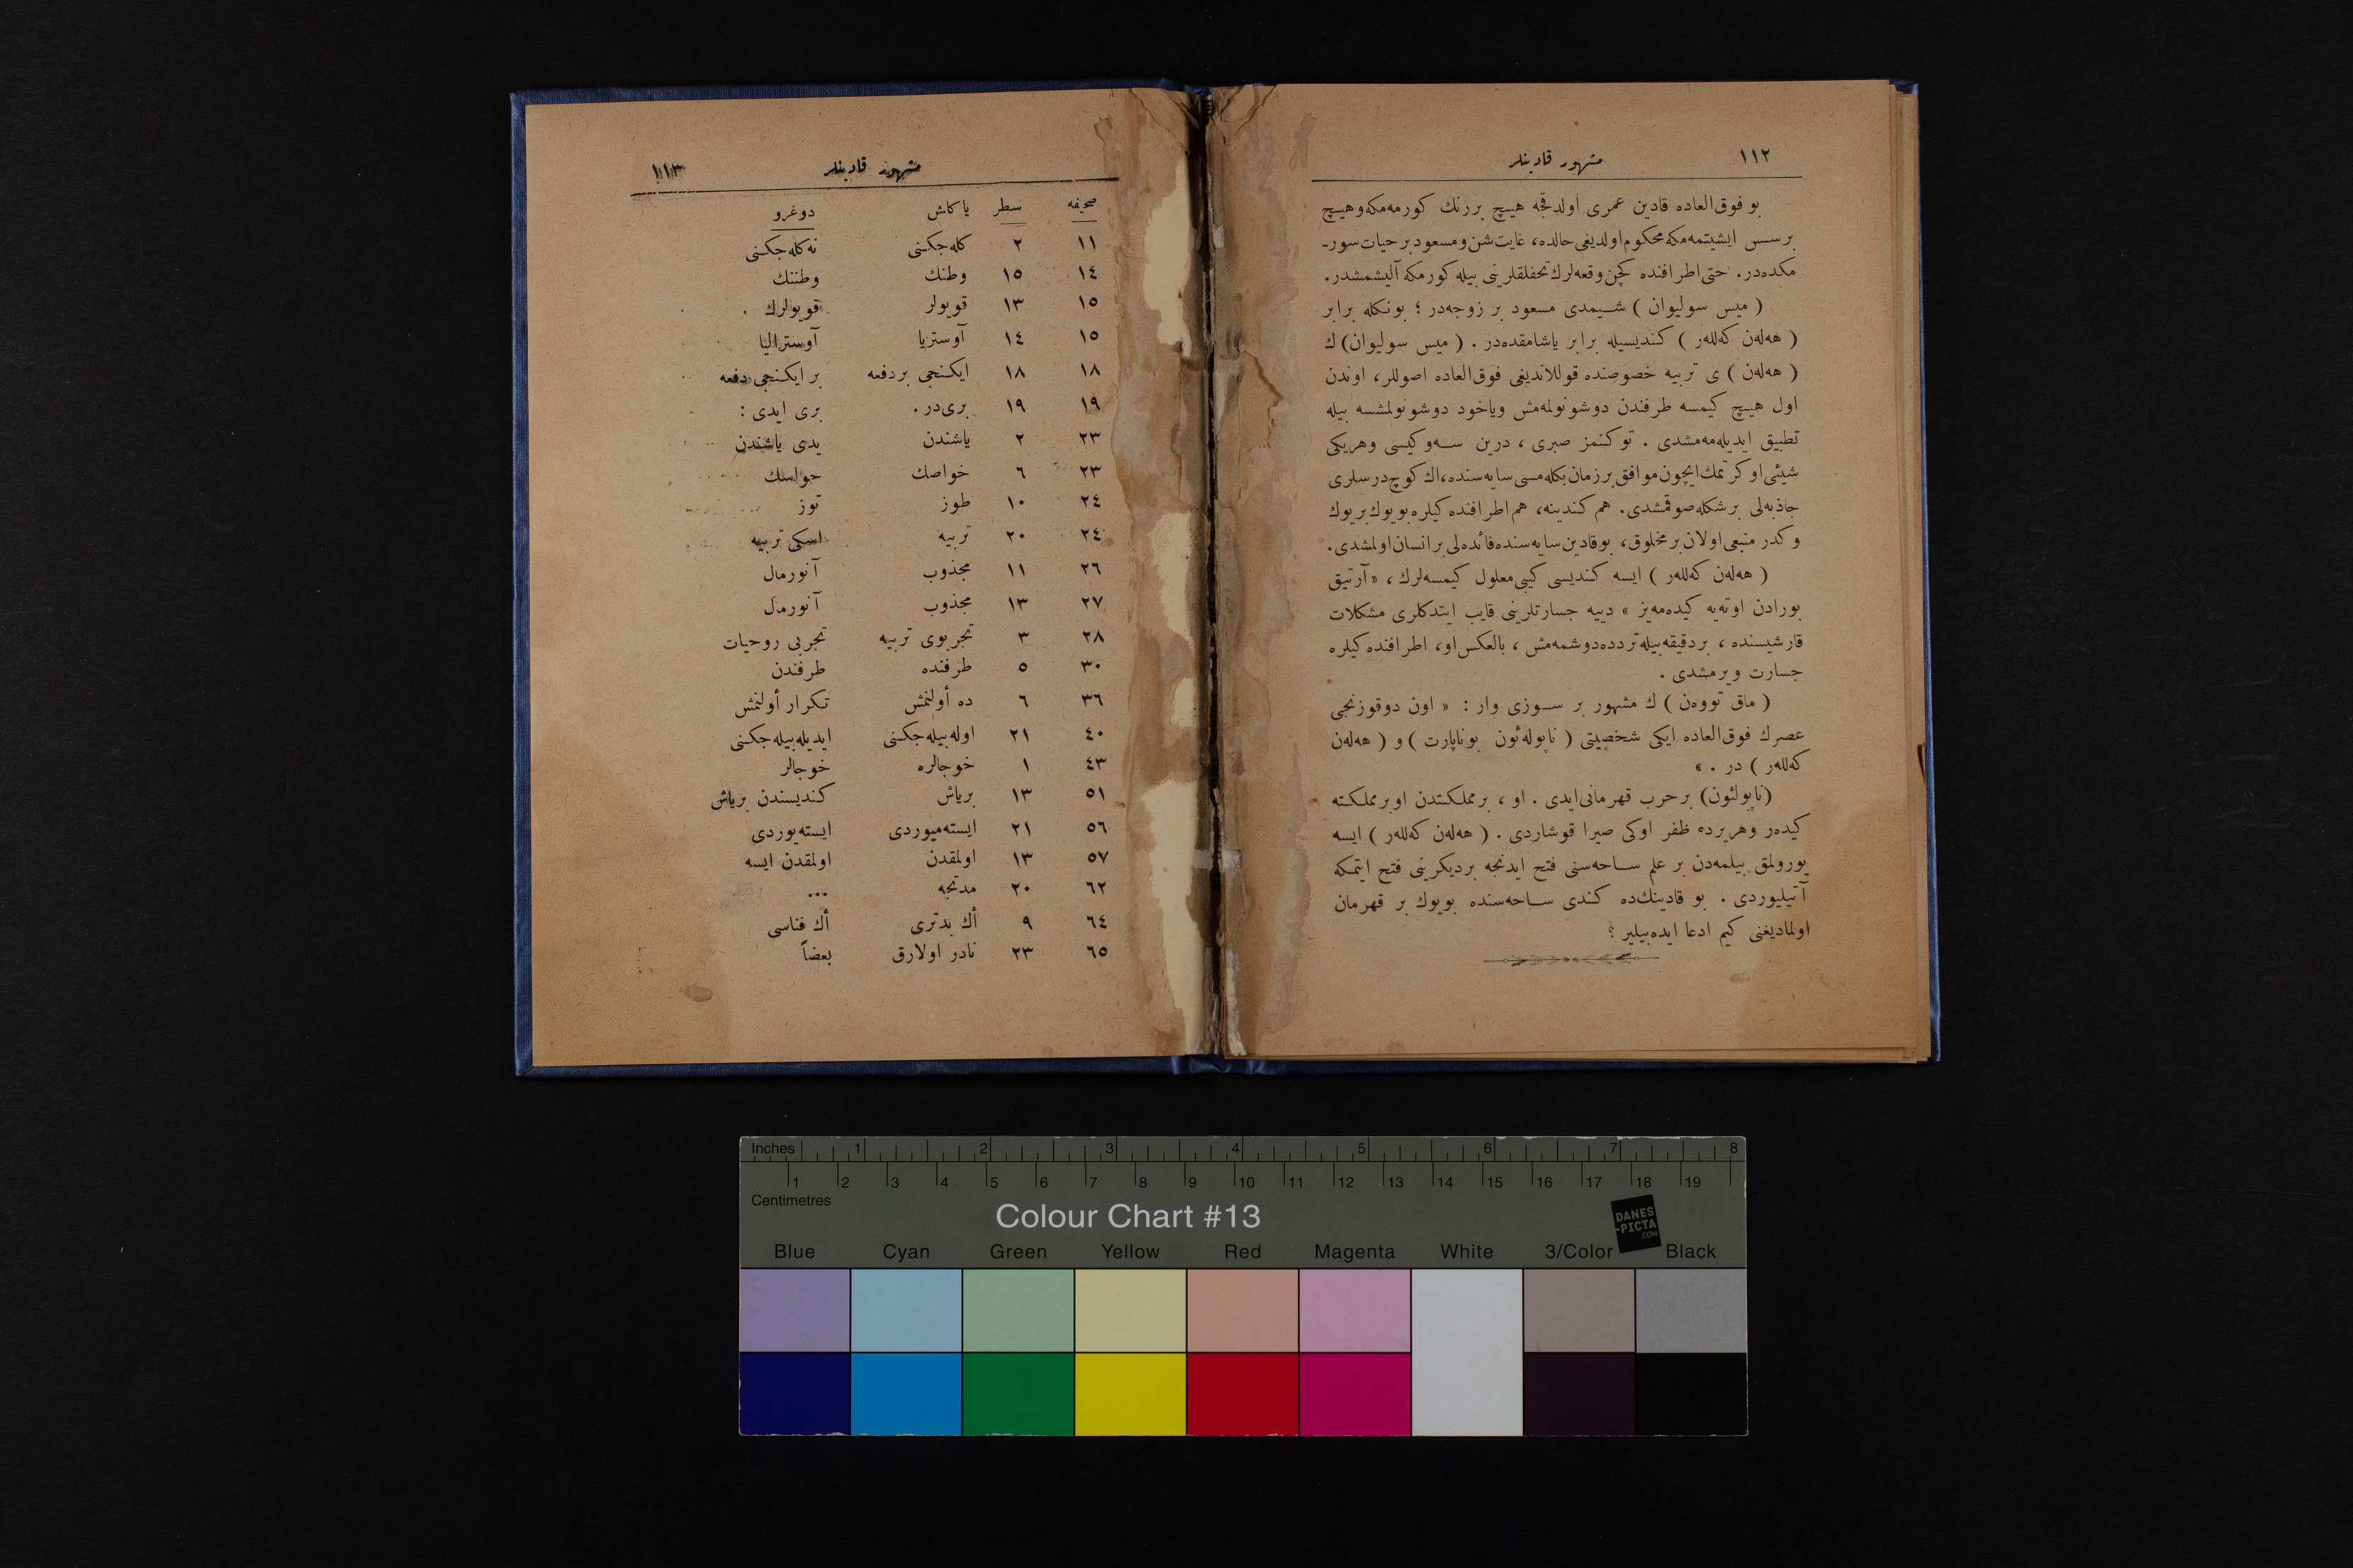 ١١٢
مشهور قادینلر
بو فوق‌العاده قادین عمری اولدقجه هیـچ بررنك كورمه‌مكه‌وهیـچ
برسس ایشیتمه‌مكه محكوم اولدیغی حالده، غایت شن و مسعود برحیات سور-
مكده‌در. حتی اطرافنده كچن وقعه‌لرك تحفلقلرینی بیله كورمكه آلیشمشدر.
( میس سولیوان ) شـیمدی مسعود بر زوجه‌در ؛ بونكله برابر
( هه‌له‌ن كه‌لله‌ر ) كندیسیله برابر یاشامقده‌در . ( میس سولیوان) ك
( هه‌له‌ن ) ی تربیه خصوصنده قوللاندیغی فوق‌العاده اصوللر، اوندن
اول هیـچ كیمسه طرفندن دوشونولمه‌مش ویاخود دوشونولمشسه بیله
تطبیق ایدیله‌مه‌مشدی . توكنمز صبری ، درین سـه‌وكیسی وهریكی
شیئی اوكرتمك ایچون موافق برزمان بكله‌مسی سایه‌سنده، اك كوچ درسلری
جاذبه‌لی برشكله صوقمشدی. هم كندینه، هم اطرافنده كیلره بویوك بریوك
و كدر منبعی اولان برمخلوق، بوقادین سایه‌سنده فائده‌لی برانسان اولمشدی.
( هه‌له‌ن كه‌لله‌ر ) ایسه كندیسی كیبی معلول كیمسه‌لرك ، « آرتیق
بورادن اوته‌یه كیده‌مه‌یز » دییه جسارتلرینی قایب ایتدكلری مشكلات
قارشیسنده ، بردقیقه بیله ترددده‌دوشمه‌مش ، بالعكس او، اطرافنده كیلره
جسارت ویرمشدی .
( ماق تووه‌ن ) ك مشهور بر سـوزی وار : « اون دوقوزنجی
عصرك فوق‌العاده ایكی شخصیتی ( ناپوله‌ئون بوناپارت ) و ( هه‌له‌ن
كه‌لله‌ر ) در . »
(ناپولئون) برحرب قهرمانی‌ایدی . او ، برمملكتدن اوبرمملكته
كیده‌ر وهریرده ظفر اوكی صیرا قوشاردی . ( هه‌له‌ن كه‌لله‌ر ) ایسه
یورولمق بیلمه‌دن بر علم سـاحه‌سنی فتح ایدنجه بردیكرینی فتح ایتمكه
آتیلیوردی . بو قادینك‌ده كندی سـاحه‌سنده بویوك بر قهرمان
اولمادیغنی كیم ادعا ایده‌بیلیر ؟
مشهور قادینلر
١١٣
صحیفه سطر یاكلش دوغرو
١١ ٢ كله‌جكنی نه‌كله‌جكنی
١٤ ١٥ وطنك وطننك
١٥ ١٣ قویولر قویولرك
١٥ ١٤ آوستریا آوسترالیا
١٨ ١٨ ایكنجی بردفعه بر ایكنجی دفعه
١٩ ١٩ بری‌در . بری ایدی :
٢٣ ٢ یاشندن یدی یاشندن
٢٣ ٦ خواصك حواسك
٢٤ ١٠ طوز توز
٢٤ ٢٠ تربیه اسكی تربیه
٢٦ ١١ مجذوب آنورمال
٢٧ ١٣ مجذوب آنورمال
٢٨ ٣ تجربوی تربیه تجربی روحیات
٣٠ ٥ طرفنده طرفندن
٣٦ ٦ ده أولنمش تكرار أولنمش
٤٠ ٢١ اوله‌بیله‌جكنی ایدیله‌بیله‌جكنی
٤٣ ١ خوجالره خوجالر
٥١ ١٣ برياش كندیسندن برياش
٥٦ ٢١ ایسته‌میوردی ایسته‌یوردی
٥٧ ١٣ اولمقدن اولمقدن ایسه
٦٢ ٢٠ مدتجه ...
٦٤ ٩ أك بدتری أك فناسی
٦٥ ٢٣ نادر اولارق بعضاً
Inches 1 2 3 4 5 6 7 8
1 2 3 4 5 6 7 8 9 10 11 12 13 14 15 16 17 18 19
Centimetres
Colour Chart #13
DANES
-PICTA
.COM
Blue Cyan Green Yellow Red Magenta White 3/Color Black